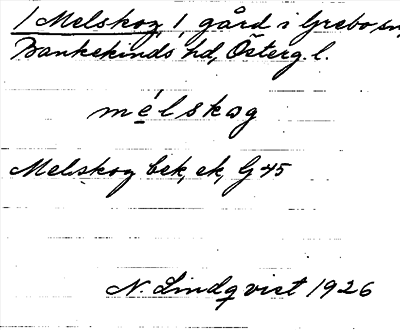 /Melskog/ gård i Grebo sn,
Bankekinds hd, Österg. l.
mélskog
Melskog bek, ek, G 45
N. Lindqvist 1926